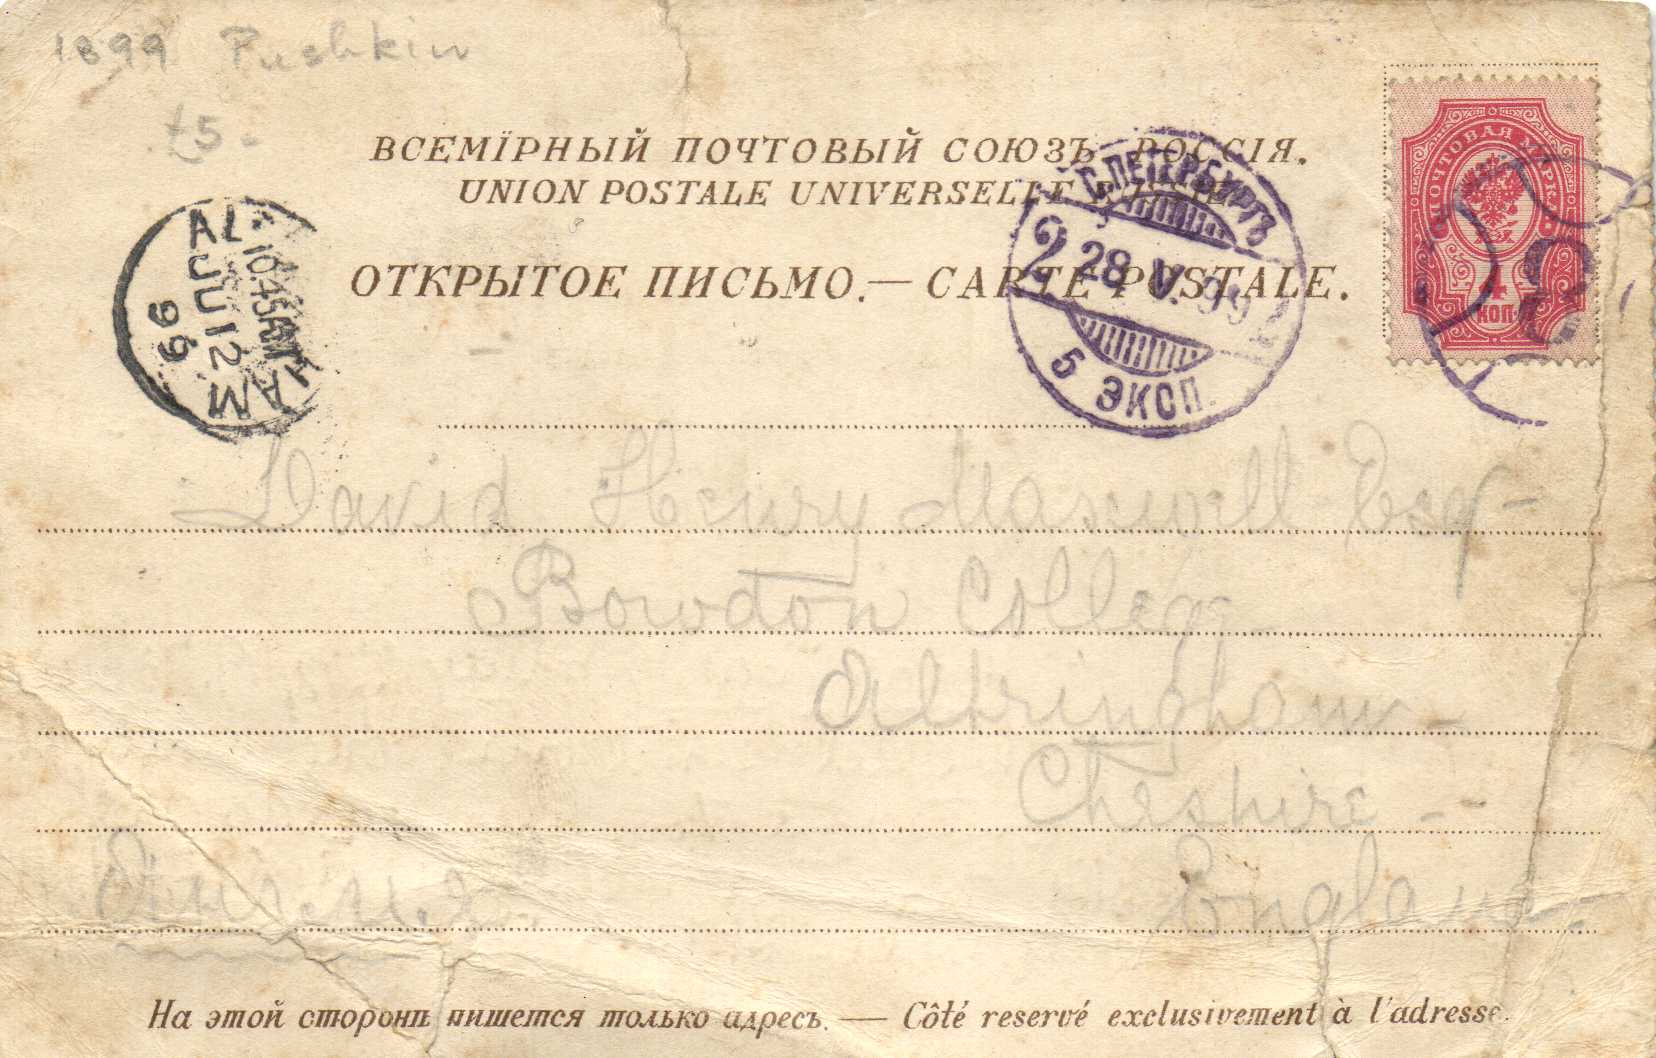 1899 Pushkin
£5-
ВСЕМІРНЫЙ ПОЧТОВЫЙ СОЮЗЪ. РОССІЯ.
UNION POSTALE UNIVERSELLE. RUSSIE.
ОТКРЫТОЕ ПИСЬМО.— CARTE POSTALE.
ПОЧТОВАЯ МАРКА
4
КОП.
С.ПЕТЕРБУРГЪ
2 28 V. 99 2
5 ЭКСП.
AL HAM
1045AM
JU 12
99
David Henry Maxwell Esq-
Bowdon College
Altringham-
Cheshire-
England
На этой сторонѣ пишется только адресъ. — Côté reservé exclusivement à l'adresse.